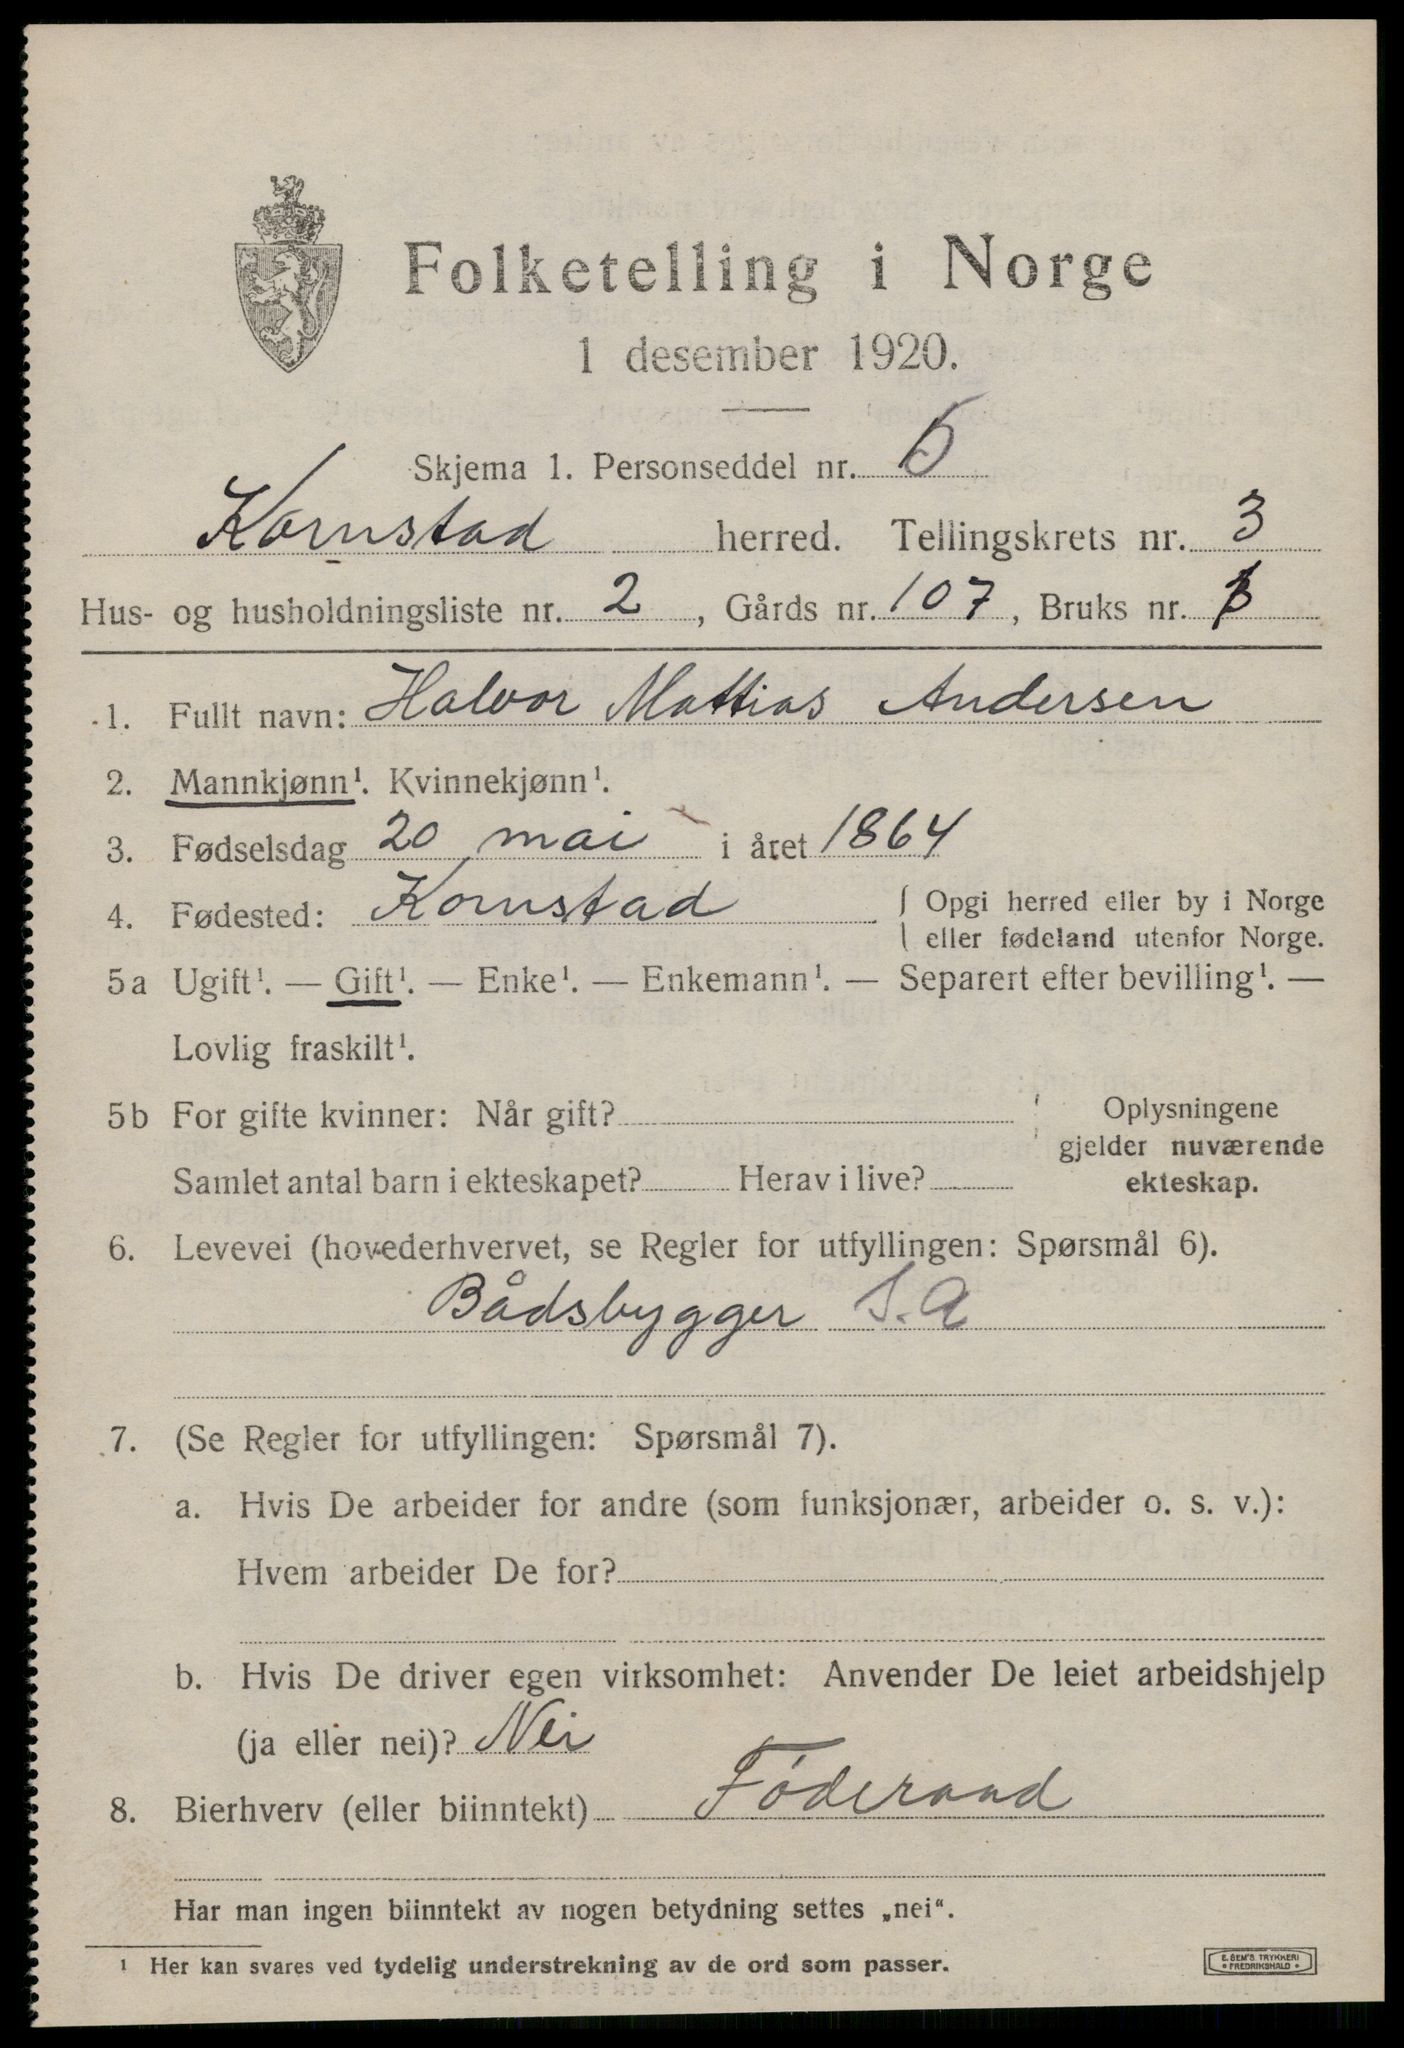 Folketelling i Norge
1 desember 1920.
Skjema 1. Personseddel nr. 5
Kornstad herred. Tellingskrets nr. 3
Hus- og husholdningsliste nr. 2, Gårds nr. 107, Bruks nr.
1. Fullt navn: Halvor Mattias Andersen
2. Mannkjønn¹. Kvinnekjønn¹.
3. Fødselsdag 20 mai i året 1864
4. Fødested: Kornstad { Opgi herred eller by i Norge
eller fødeland utenfor Norge.
5a Ugift¹. — Gift¹. — Enke¹. — Enkemann¹. — Separert efter bevilling¹. —
Lovlig fraskilt¹.
5b For gifte kvinner: Når gift? Oplysningene
gjelder nuværende
Samlet antal barn i ekteskapet? Herav i live? ekteskap.
6. Levevei (hovederhvervet, se Regler for utfyllingen: Spørsmål 6).
Bådsbygger S.A
7. (Se Regler for utfyllingen: Spørsmål 7).
a. Hvis De arbeider for andre (som funksjonær, arbeider o. s. v.):
Hvem arbeider De for?
b. Hvis De driver egen virksomhet: Anvender De leiet arbeidshjelp
(ja eller nei)? Nei
8. Bierhverv (eller biinntekt) Føderaad
Har man ingen biinntekt av nogen betydning settes „nei“.
¹ Her kan svares ved tydelig understrekning av de ord som passer.
E. SEM'S TRYKKERI
FREDRIKSHALD